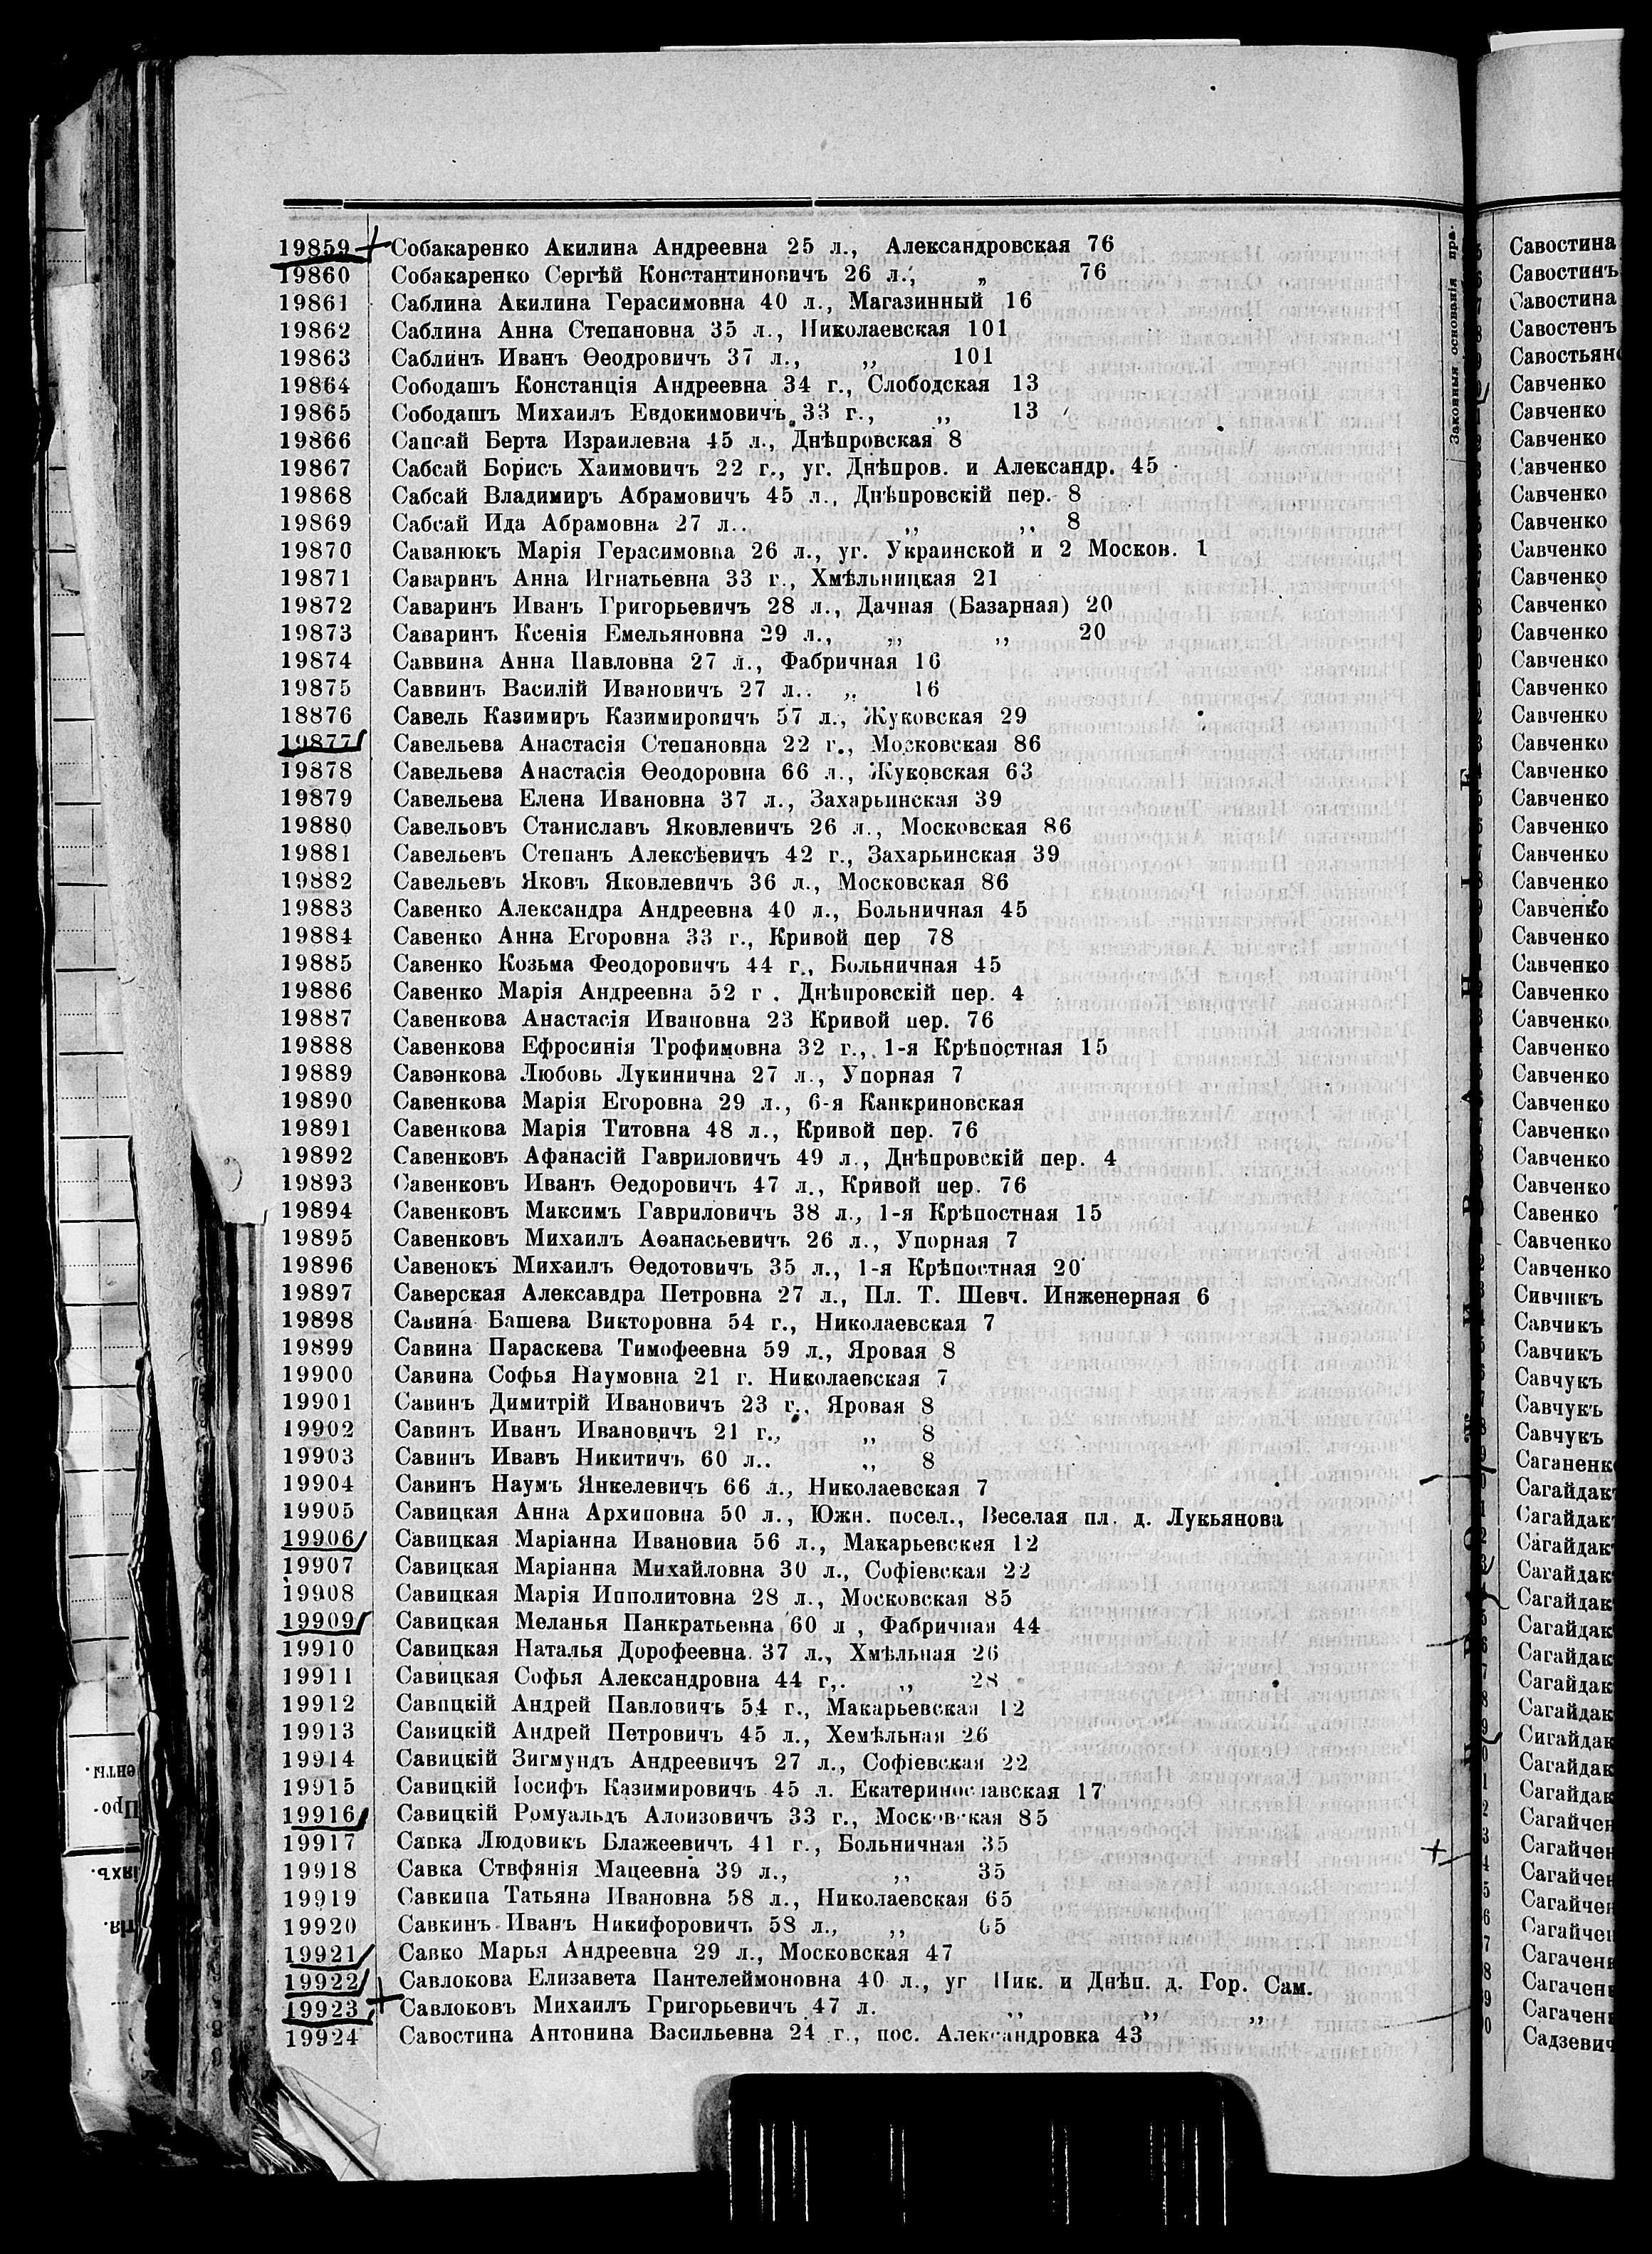 19859 Собакаренко Акилина Андреевна 25 л., Александровская 76
19860 Собакаренко Сергѣй Константиновичъ 26 л., „ 76
19861 Саблина Акилина Герасимовна 40 л., Магазинный 16
19862 Саблина Анна Степановна 35 л., Николаевская 101
19863 Саблинъ Иванъ Ѳеодровичъ 37 л., „ 101
19864 Сободашъ Констанція Андреевна 34 г., Слободская 13
19865 Сободашъ Михаилъ Евдокимовичъ 33 г., „ 13
19866 Сапсай Берта Израилевна 45 л., Днѣпровская 8
19867 Сабсай Борисъ Хаимовичъ 22 г., уг. Днѣпров. и Александр. 45
19868 Сабсай Владимиръ Абрамовичъ 45 л., Днѣпровскій пер. 8
19869 Сабсай Ида Абрамовна 27 л.. „ „ 8
19870 Саванюкъ Марія Герасимовна 26 л., уг. Украинской и 2 Москов. 1
19871 Саваринъ Анна Игнатьевна 33 г., Хмѣльницкая 21
19872 Саваринъ Иванъ Григорьевичъ 28 л., Дачная (Базарная) 20
19873 Саваринъ Ксенія Емельяновна 29 л., „ „ 20
19874 Саввина Анна Павловна 27 л., Фабричная 16
19875 Саввинъ Василій Ивановичъ 27 л.. „ 16
18876 Савель Казимиръ Казимировичъ 57 л., Жуковская 29
19877 Савельева Анастасія Степановна 22 г., Московская 86
19878 Савельева Анастасія Ѳеодоровна 66 л., Жуковская 63
19879 Савельева Елена Ивановна 37 л., Захарьинская 39
19880 Савельовъ Станиславъ Яковлевичъ 26 л., Московская 86
19881 Савельевъ Степанъ Алексѣевичъ 42 г., Захарьинская 39
19882 Савельевъ Яковъ Яковлевичъ 36 л., Московская 86
19883 Савенко Александра Андреевна 40 л., Больничная 45
19884 Савенко Анна Егоровна 33 г., Кривой пер 78
19885 Савенко Козьма Феодоровичъ 44 г., Больничная 45
19886 Савенко Марія Андреевна 52 г. Днѣпровскій пер. 4
19887 Савенкова Анастасія Ивановна 23 Кривой пер. 76
19888 Савенкова Ефросинія Трофимовна 32 г., 1-я Крѣпостная 15
19889 Савэнкова Любовь Лукинична 27 л., Упорная 7
19890 Савенкова Марія Егоровна 29 л., 6-я Канкриновская
19891 Савенкова Марія Титовна 48 л., Кривой пер. 76
19892 Савенковъ Афанасій Гавриловичъ 49 л., Днѣпровскій пер. 4
19893 Савенковъ Иванъ Ѳедоровичъ 47 л., Кривой пер. 76
19894 Савенковъ Максимъ Гавриловичъ 38 л., 1-я Крѣпостная 15
19895 Савенковъ Михаилъ Аѳанасьевичъ 26 л., Упорная 7
19896 Савенокъ Михаилъ Ѳедотовичъ 35 л., 1-я Крѣпостная 20
19897 Саверская Алексавдра Петровна 27 л., Пл. Т. Шевч. Инженерная 6
19898 Савина Башева Викторовна 54 г., Николаевская 7
19899 Савина Параскева Тимофеевна 59 л., Яровая 8
19900 Савина Софья Наумовна 21 г. Николаевская 7
19901 Савинъ Димитрій Ивановичъ 23 г., Яровая 8
19902 Савинъ Иванъ Ивановичъ 21 г., „ 8
19903 Савинъ Ивавъ Никитичъ 60 л.. „ 8
19904 Савинъ Наумъ Янкелевичъ 66 л., Николаевская 7
19905 Савицкая Анна Архиповна 50 л., Южн. посел., Веселая пл. д. Лукьянова
19906 Савицкая Маріанна Ивановна 56 л., Макарьевская 12
19907 Савицкая Маріанна Михайловна 30 л., Софіевская 22
19908 Савицкая Марія Ипполитовна 28 л., Московская 85
19909 Савицкая Меланья Панкратьевна 60 л , Фабричная 44
19910 Савицкая Наталья Дорофеевна. 37 л., Хмѣльная 26
19911 Савицкая Софья Александровна 44 г,. „ 28
19912 Савицкій Андрей Павловичъ 54 г., Макарьевская 12
19913 Савицкій Андрей Петровичъ 45 л., Хемѣльная 26
19914 Савицкій Зигмундъ Андреевичъ 27 л., Софіевская 22
19915 Савицкій Іосифъ Казимировичъ 45 л. Екатеринославская 17
19916 Савицкій Ромуальдъ Алоизовичъ 33 г., Московская 85
19917 Савка Людовикъ Блажеевичъ 41 г., Больничная 35
19918 Савка Ствфянія Мацеевна 39 л., „ 35
19919 Савкина Татьяна Ивановна 58 л., Николаевская 65
19920 Савкинъ Иванъ Никифоровичъ 58 л., „ 65
19921 Савко Марья Андреевна 29 л., Московская 47
19922 Савлокова Елизавета Пантелеймоновна 40 л., уг Ник. и Днѣп. д. Гор. Сам.
19923 Савлоковъ Михаилъ Григорьевичъ 47 л. „ „ „
19924 Савостина Антонина Васильевна 24 г., пос. Александровка 43
Законныя основанія пра-
Савостина
Савостинъ
Савостина
Савостенъ
Савостьян
Савченко
Савченко
Савченко
Савченко
Савченко
Савченко
Савченко
Савченко
Савченко
Савченко
Савченко
Савченко
Савченко
Савченко
Савченко
Савченко
Савченко
Савченко
Савченко
Савченко
Савченко
Савченко
Савченко
Савченко
Савченко
Савченко
Савченко
Савченко
Савченко
Савченко
Савенко
Савченко
Савченко
Сивчикъ
Савчикъ
Савчикъ
Савчукъ
Савчукъ
Савчукъ
Саганенк
Сагайдак
Сагайдак
Сагайдак
Сагайдак
Сагайдак
Сагайдак
Сагайдак
Сагайдак
Сагайдак
Сигайдак
Сагайдак
Сагайдак
Сагайчен
Сагайчен
Сагайчен
Сагайчен
Сагайчен
Сагачен
Сагачен
Сагачен
Садзевич